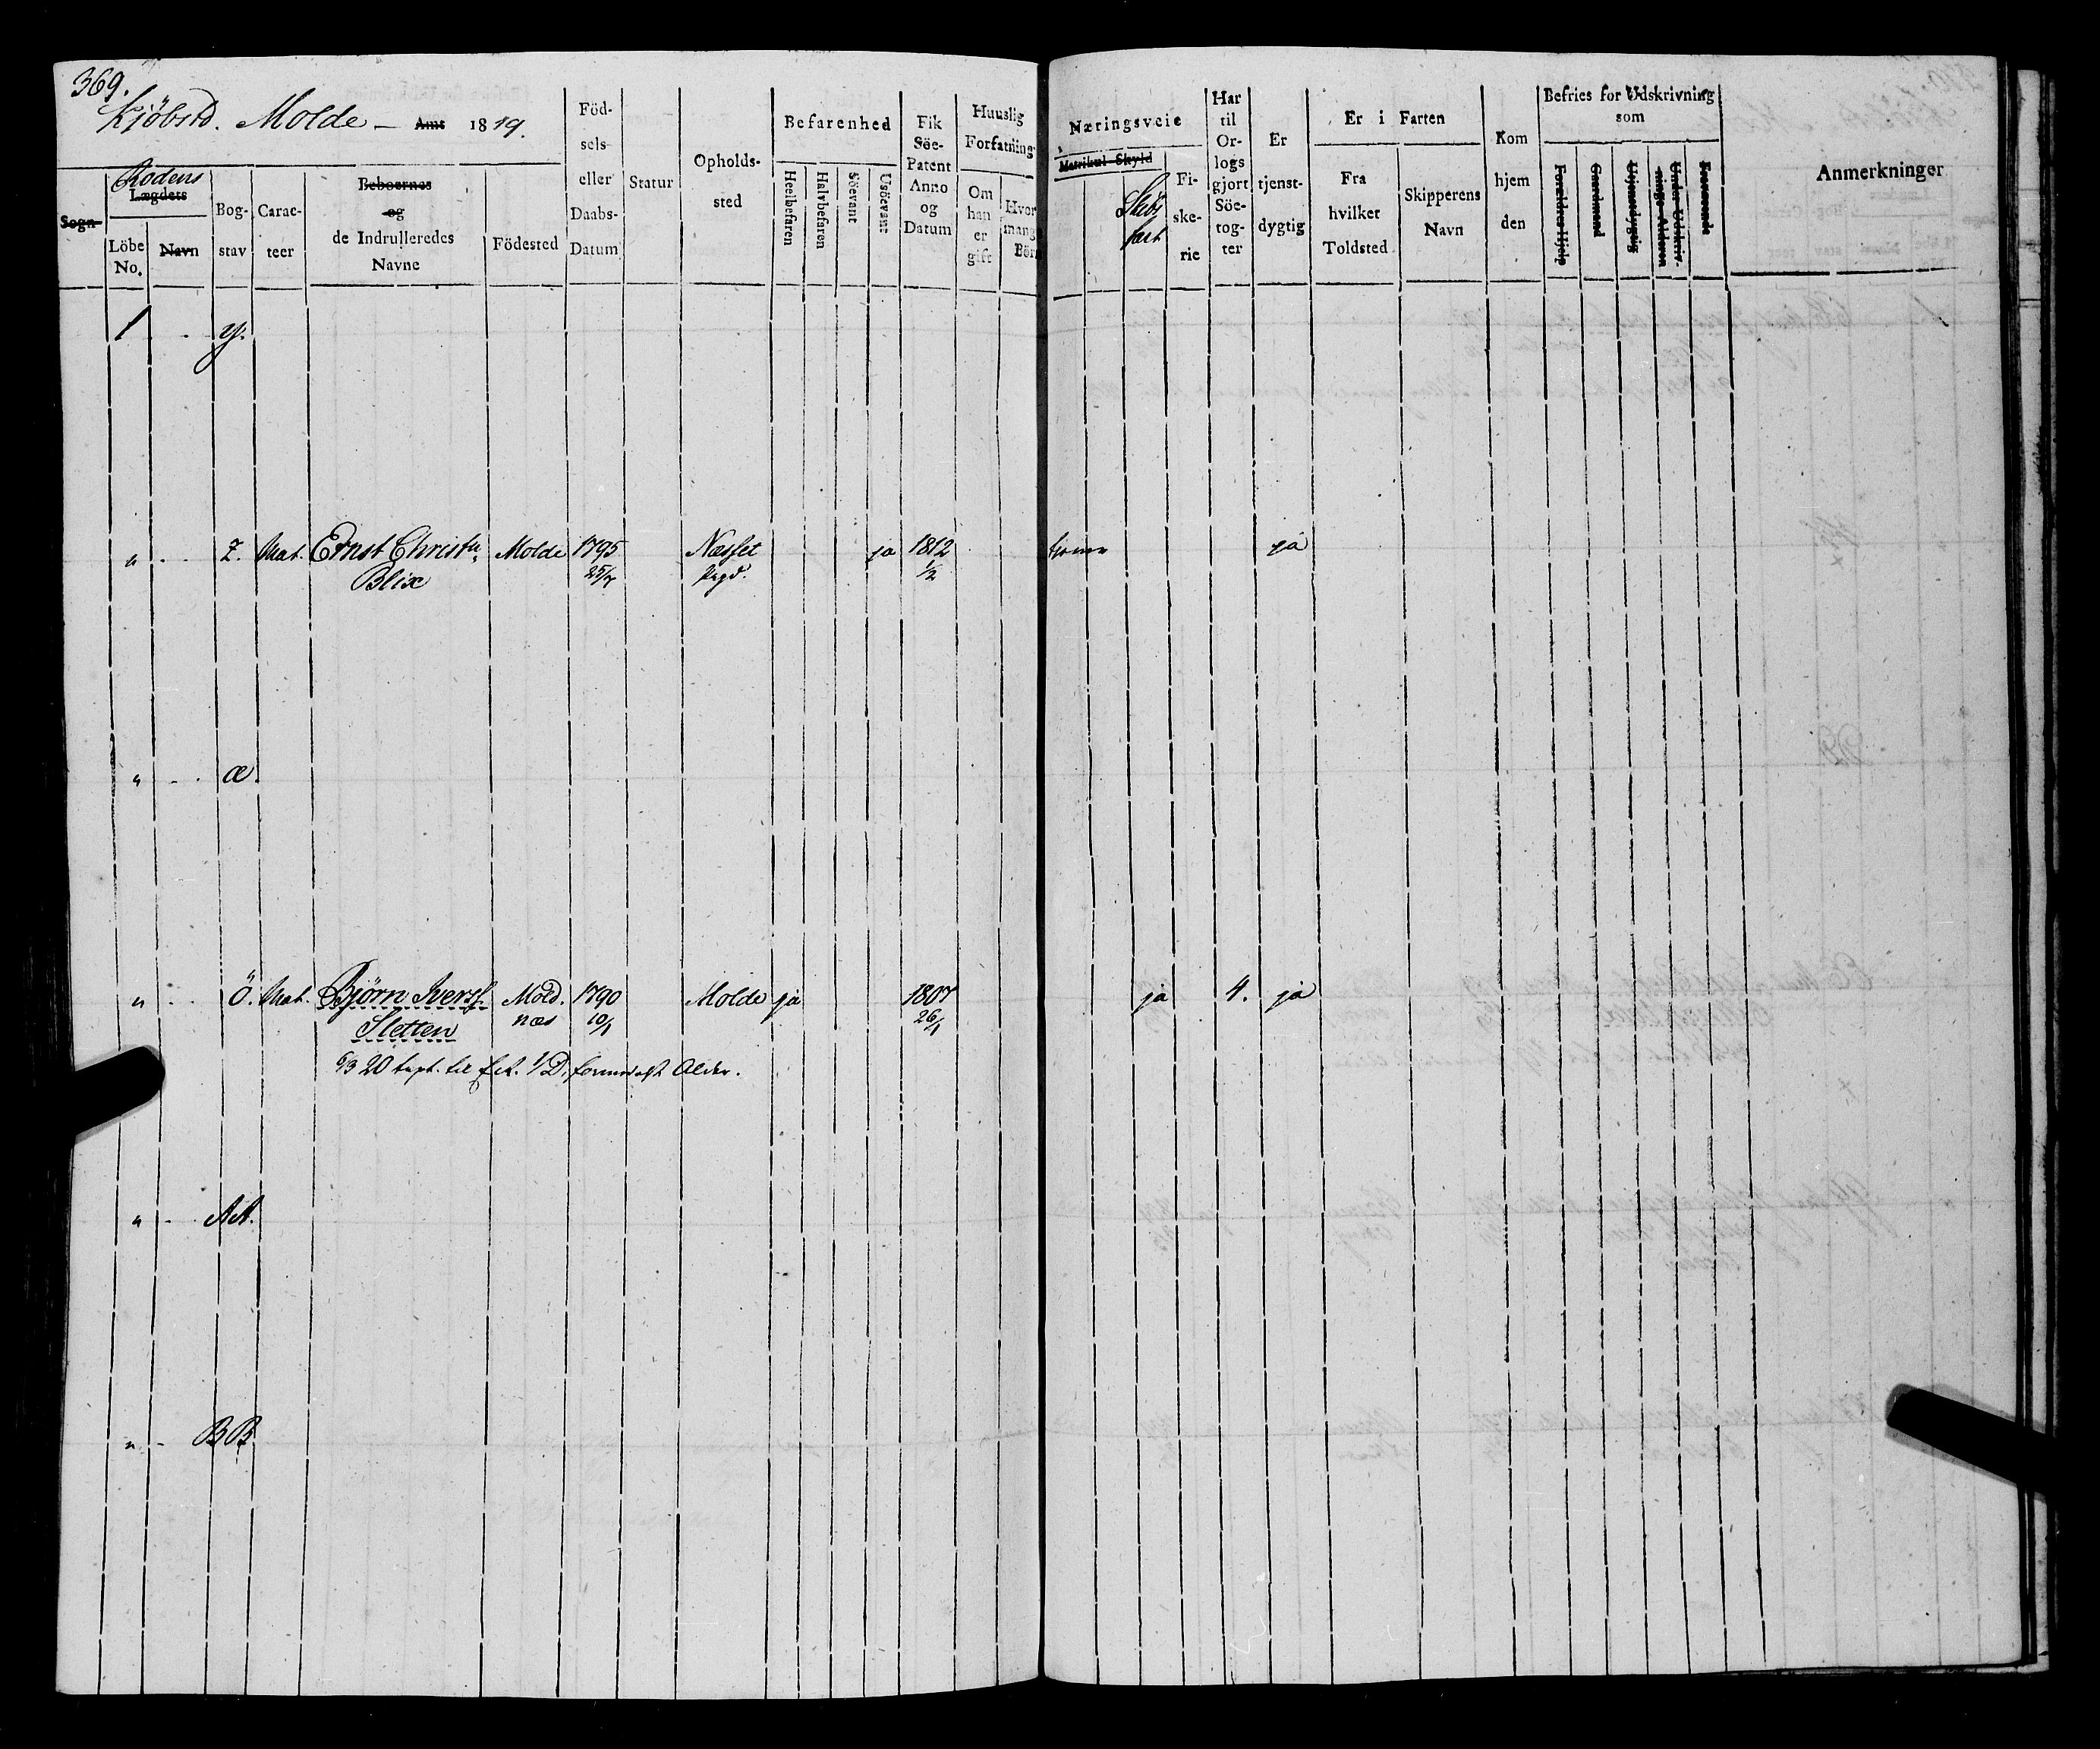 369.
Kjöbstd. Molde - Amt 1819.
Sogn
Rodens
Lægdets
Löbe No.
Navn
Bog-stav
Carac-teer
Beboernes
og
de Indrulleredes
Navne
Födested
Föd-
sels-
eller
Daabs-
Datum
Statur
Opholds-
sted
Befarenhed
Heelbefaren
Halvbefaren
Söevant
Usöevant
Fik
Söe-
Patent
Anno
og
Datum
Huuslig
Forfatning
Om
han
er
gift
Hvor
mang
Börn
Næringsveie
Matrikul-Skyld
Skibs
fart
Fi-
ske-
rie
Har
til
Or-
logs
gjort
Söe-
tog-
ter
Er
tjenst-
dygtig
Er i Farten
Fra
hvilket
Toldsted
Skipperens
Navn
Kom
hjem
den
Befries for Udskrivning
som
Forældres Hjelp
Gaardmand
Utjenstdygtig
Under Udskriv-
nings-Alderen
Anmerkninger
1 - y.
" - Z. Mat. Ernst Christn Molde 1795 Næsset ja 1812 ja
Blix 25/7 Prgd. 1/2
" - æ.
" - ö. Mat. Björn Ivers. Mold. 1790 Molde ja 1807 ja 4. ja
Sletten næs 10/1 26/1
6/3 20 til 1/D, Alder.
" - AA.
" - BB.